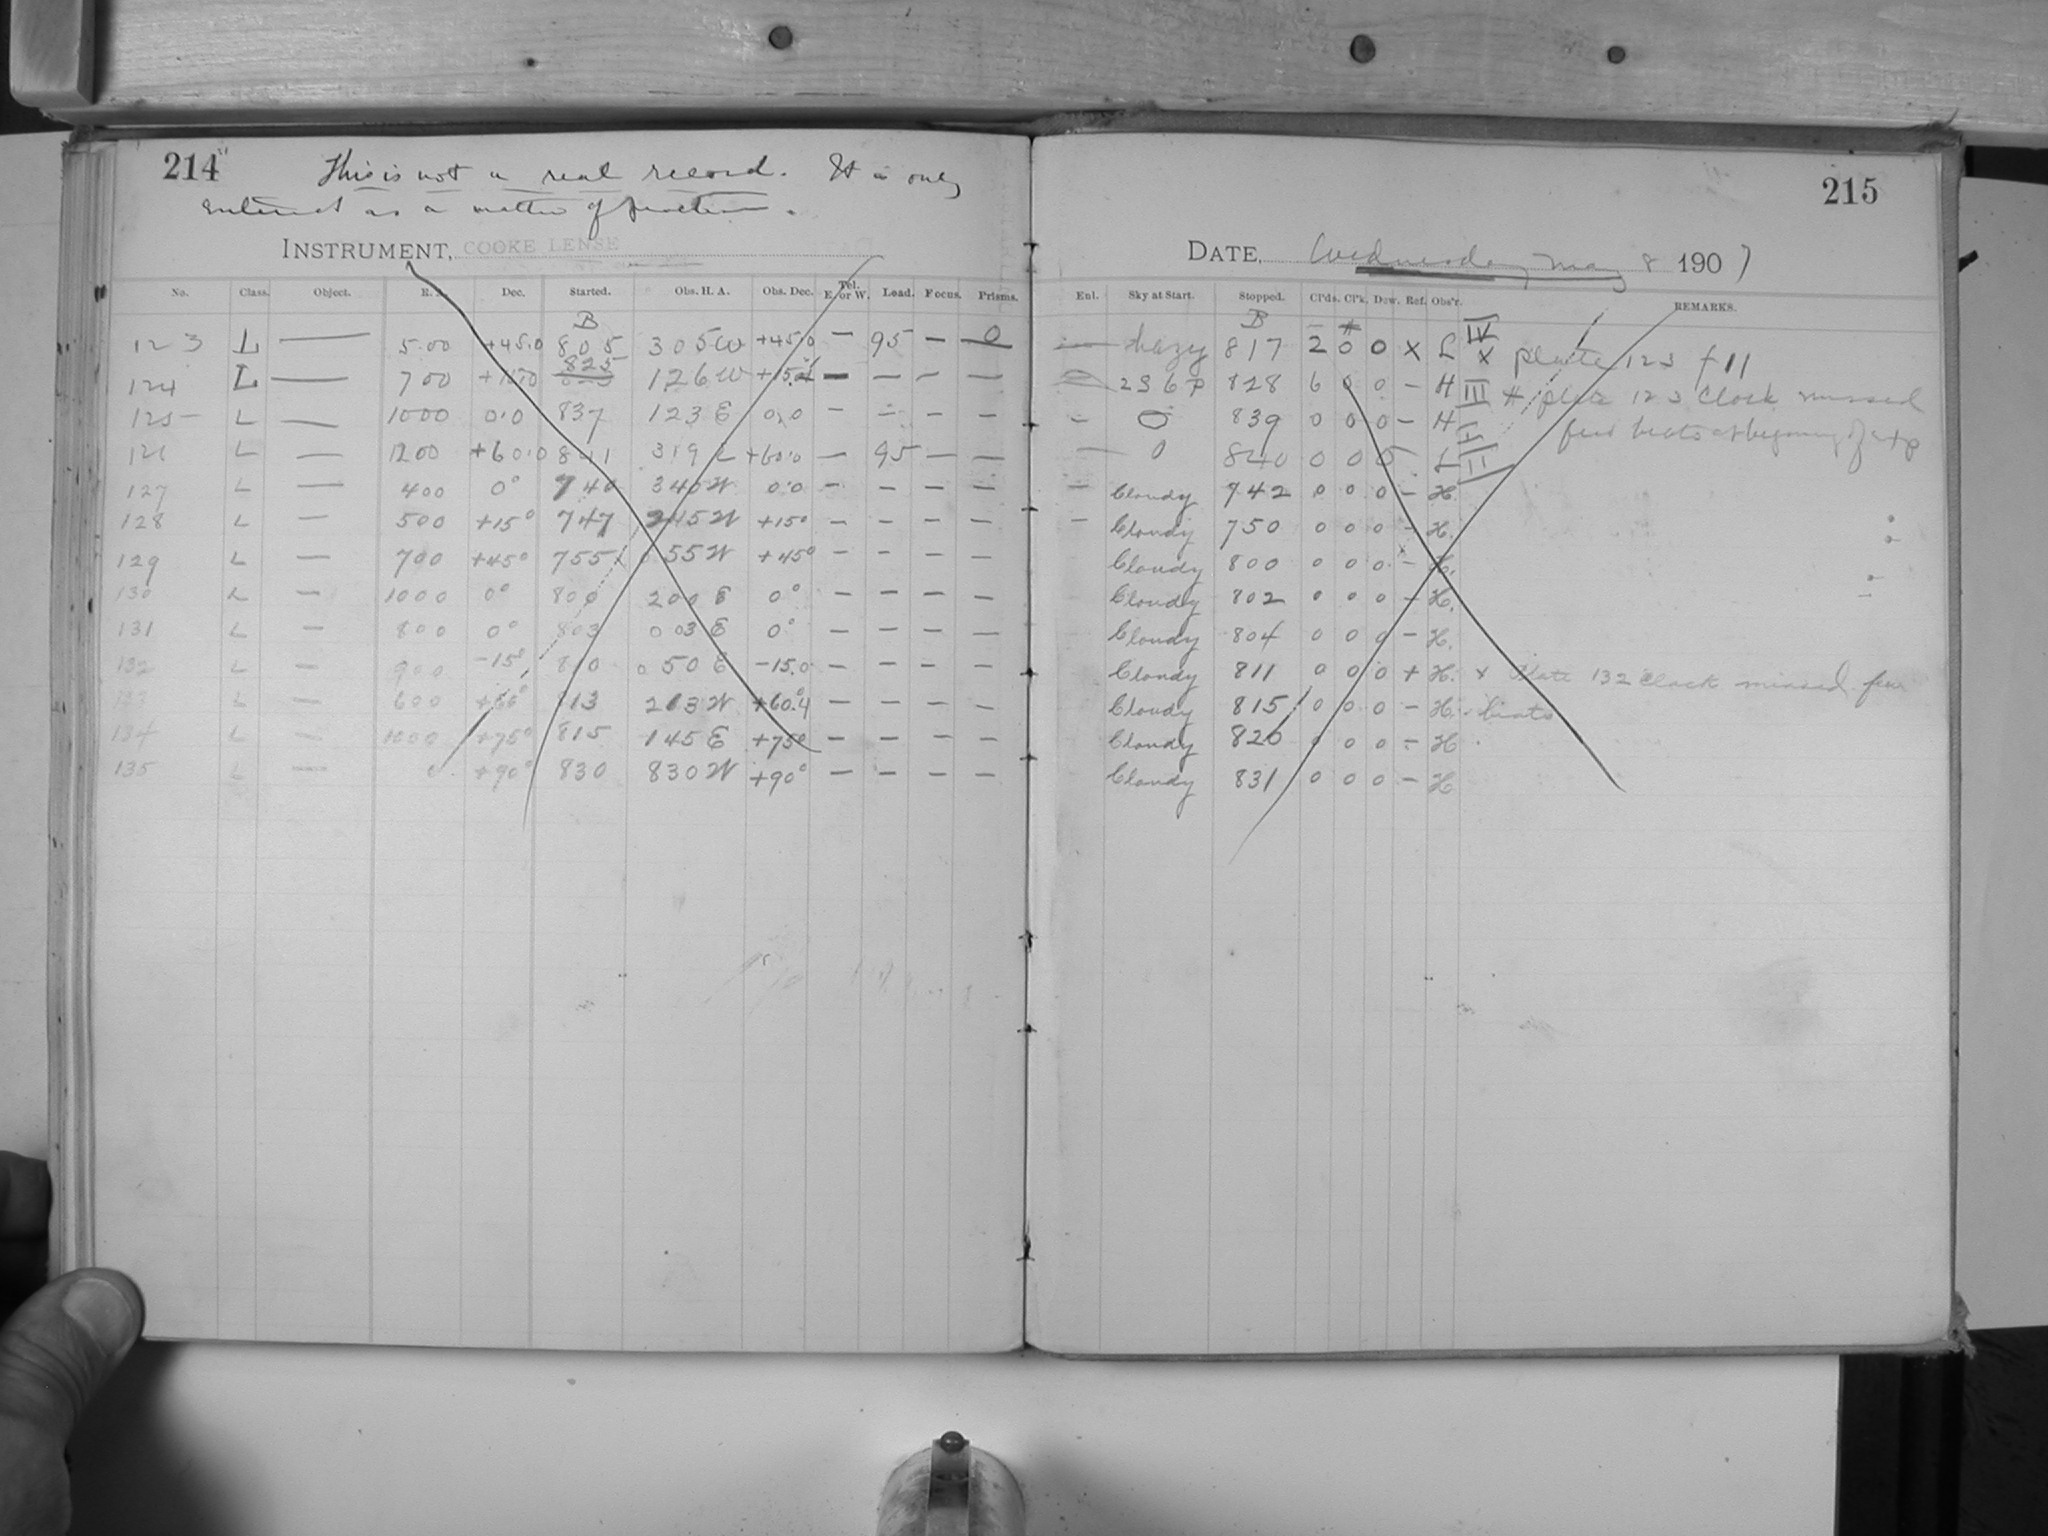 214
This is not a real record. It is only
entered as a matter of practice.
INSTRUMENT, COOKE LENSE
No. Class. Object. R. A. Dec. Started. Obs. H. A. Obs. Dec. Tel. E. or W. Load. Focus. Prisms.
B
123 L — 500 +45.0 805 305W +45.0 — 95 — 0
124 L — 700 825 126W — — — —
125 L — 1000 0.0 837 123E 0.0 — — — —
126 L — 1200 +60.0 841 319 +60.0 — 95 — —
127 L — 400 0° 740 340W 0.0 — — — —
128 L — 500 +15° 747 245W +15° — — — —
129 L — 700 +45° 755 055W +45° — — — —
130 L — 1000 0° 800 200E 0° — — — —
131 L — 800 0° 803 003E 0° — — — —
132 L — 900 -15° 810 050E -15.0 — — — —
133 L — 600 +60° 813 213W +60.4 — — — —
134 L — 1000 +75° 815 145E +75° — — — —
135 L — 0 +90° 830 830W +90° — — — —
215
DATE, Wednesday May 8 1907
Enl. Sky at Start. Stopped. Cl'ds. Cl'k. Dew. Ref. Obs'r. REMARKS.
B #
— hazy 817 2 0 0 x L IV x plate 123 f 11
2S6P 828 6 0 0 — H III # plate 123 Clock missed
— 0 839 0 0 0 — H few beats at begining of exp
— 0 840 0 0 0 L II
— Cloudy 742 0 0 0 — H.
— Cloudy 750 0 0 0 — H.
Cloudy 800 0 0 0 — H.
Cloudy 802 0 0 0 — H.
Cloudy 804 0 0 0 — H.
Cloudy 811 0 0 0 + H. x Plate 132 clock missed few
Cloudy 815 0 0 0 — H. beats
Cloudy 820 0 0 0 — H.
Cloudy 831 0 0 0 — H